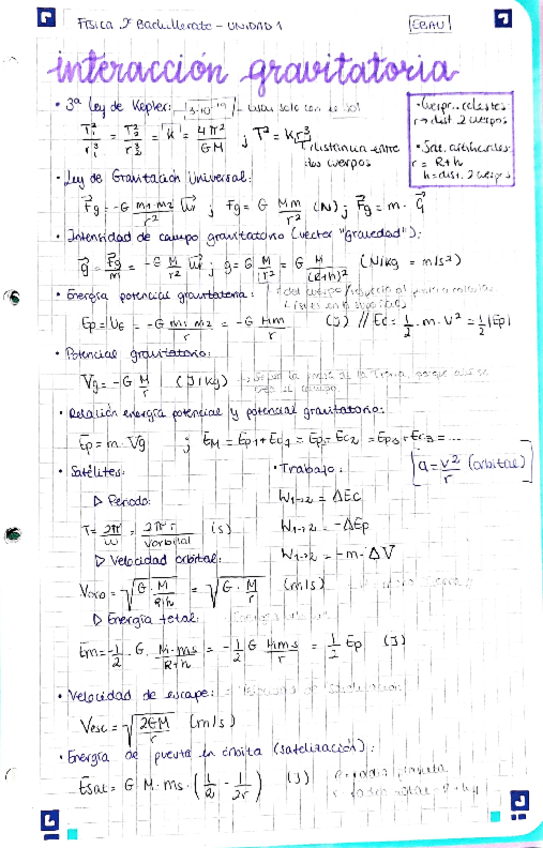 FÍSICA 2º Bachillerato - UNIDAD 1
EBAU
interacción gravitatoria
• 3ª Ley de Kepler:
T₁²/r₁³ = T₂²/r₂³ = "K" = 4π²/GM ; T² = K·r³
r: distancia entre
dos cuerpos
r → dist. 2 cuerpos
• Sat. artificiales
r = R+h
h = dist. 2 cuerpos
• Ley de Gravitación Universal:
F⃗g = -G m₁·m₂/r² u⃗r ; Fg = G Mm/r² (N) ; F⃗g = m · g⃗
• Intensidad de campo gravitatorio (vector "gravedad"):
g⃗ = F⃗g/m = -G M/r² u⃗r ; g = G M/r² = G M/(R+h)² (N/kg = m/s²)
• Energía potencial gravitatoria:
Ep = UG = -G m₁ m₂/r = -G Mm/r (J) // Ec = 1/2 · m · v² = 1/2 |Ep|
• Potencial gravitatorio:
Vg = -G M/r (J/kg)
• Relación energía potencial y potencial gravitatorio:
Ep = m · Vg ; EM = Ep₁ + Ec₁ = Ep₂ + Ec₂ = Ep₃ + Ec₃ = ...
• Satélites:
• Trabajo:
[a = v²/r (orbital)]
▷ Periodo:
W₁→₂ = ΔEc
T = 2π/ω = 2π r/Vorbital (s)
W₁→₂ = -ΔEp
▷ Velocidad orbital:
W₁→₂ = -m · ΔV
Vorb = √(G · M/R+h) = √(G · M/r) (m/s)
▷ Energía total:
Em = -1/2 · G · M·ms/R+h = -1/2 G M·ms/r = 1/2 Ep (J)
• Velocidad de escape:
Vesc = √(2GM/r) (m/s)
• Energía de puesta en órbita (satelización):
Esat = G M·ms · (1/R - 1/2r) (J)